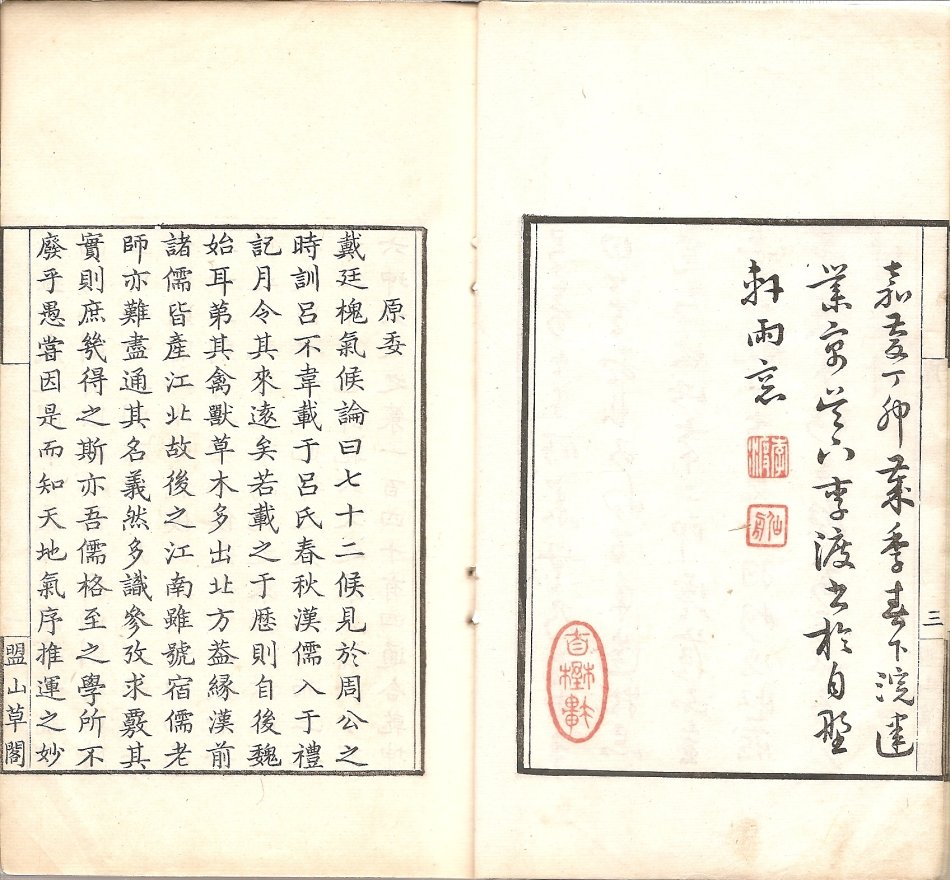 三
嘉慶丁卯歲季春下浣建
業李渡書於自野
軒雨窓
李渡
原委
戴廷槐氣候論曰七十二候見於周公之
時訓呂不韋載于呂氏春秋漢儒入于禮
記月令其來逺矣若載之于歷則自後魏
始耳苐其禽獸草木多出北方葢緣漢前
諸儒皆產江北故後之江南雖號宿儒老
師亦難盡通其名義然多識參攷求覈其
實則庶幾得之斯亦吾儒格至之學所不
廢乎愚嘗因是而知天地氣序推運之妙
盟山草閣